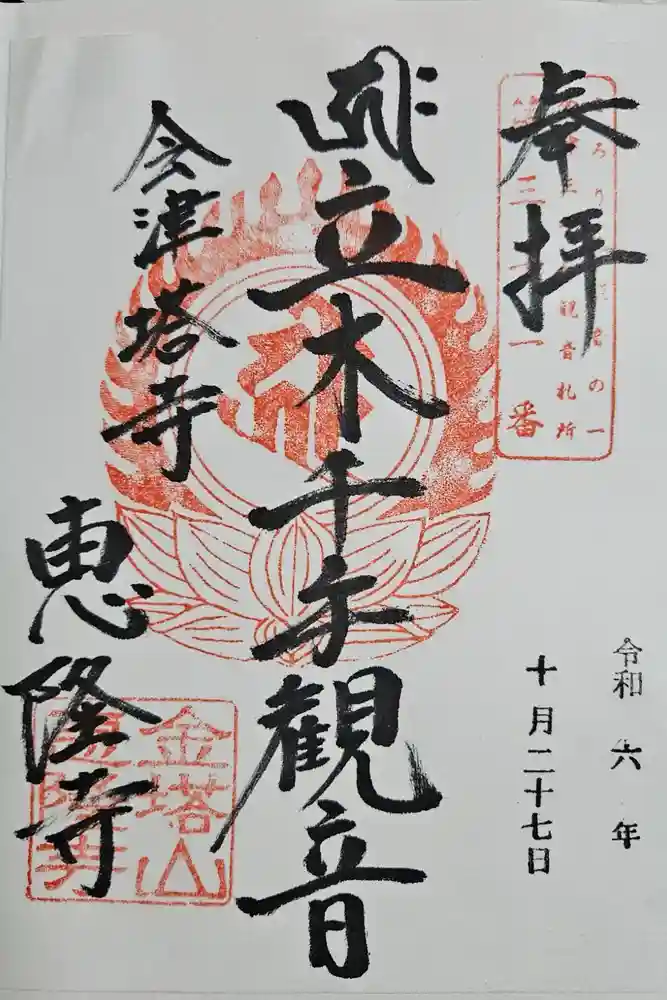 奉拝
三十一番
観音札所
の一
立木千手観音
会津塔寺
恵隆寺
金塔山
恵隆寺
令和六年
十月二十七日